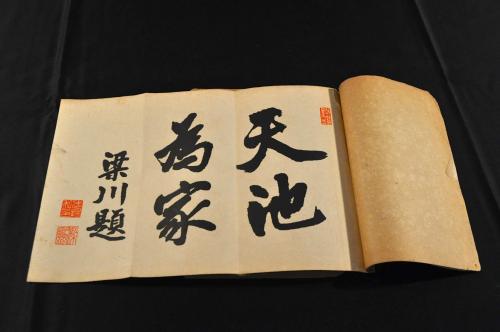 天池
為家
梁川題